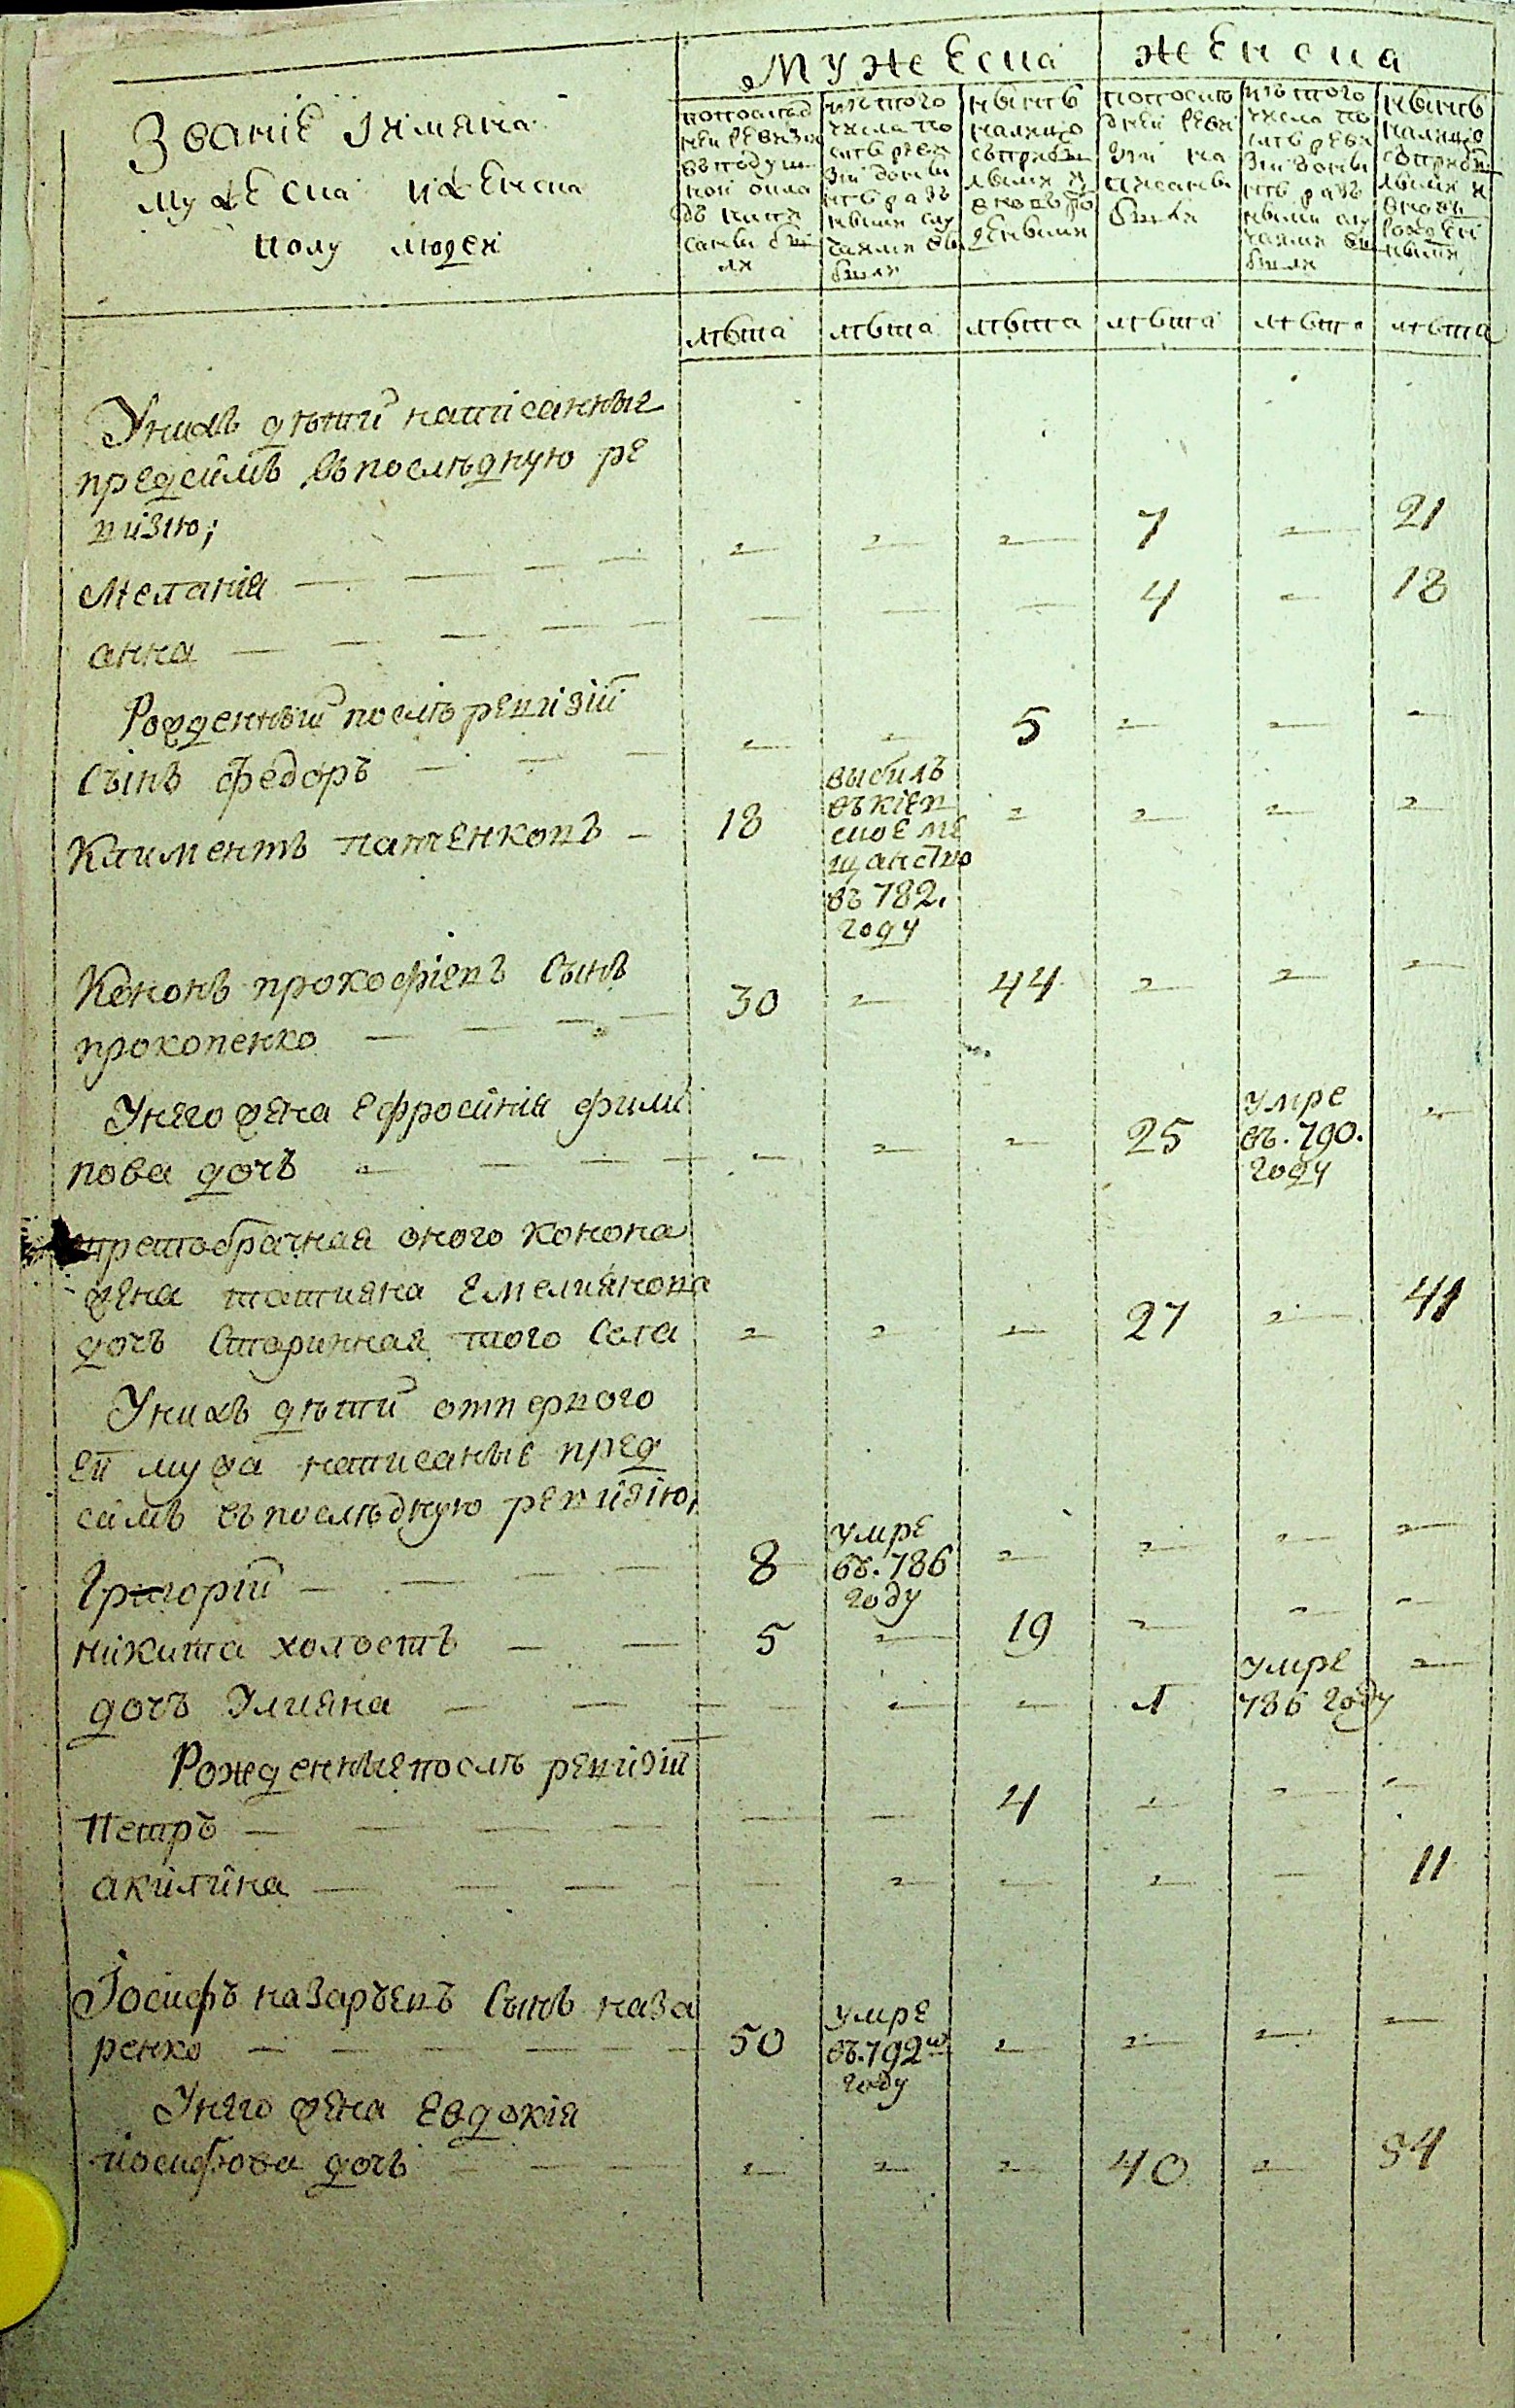 Мужеска женска
Званіе Іимяна
мужеска ижЕнска
полу людеи
попослед
неи ревизи
въподуш
нои окла
дъ напи
саны бы
ли
изътого
числа по
слѣ реви
зии разъ
ными слу
чаями вы
были
нынѣ
налицо
съприбы
лыми и
вновь ро
жденными
попослѣ
днеи реви
зии на
писаны
были
изътого
числа по
слѣ реви
зии разъ
ными слу
чаями вы
были
нынѣ
налицо
съприбы
лыми и
вновь
рожден
ными
лѣта лѣта лѣта лѣта лѣта лѣта
Унихъ дѣтӣ написанные
предсимъ въпослѣдную ре
визію;
Меланія 7 21
анна 4 18
Рожденный послѣ ревизіи
Сынъ федоръ 5
Климентъ патченковъ 18 выбилъ
въкіев
скоЕ мЕ
щанство
въ 782.
году
Кононъ прокофіевъ Сынъ
прокопенко 30 44
Унего жена Ефросинія фили
пова дочъ 25 умре
въ. 790.
году
претобрачная оного Конона
жена татияна Емелиянова
дочъ Старинная того Села 27 41
Унихъ дѣтӣ отперваго
Ей мужа написаные пред
симъ въпослѣдную ревизію,
Григорій 8 умрЕ
въ. 786
году
никита холостъ 5 19
дочъ Улияна 1 умрЕ
786 году
Рожденные послѣ ревизіи
Петръ 4
акилина 11
Іосифъ назаръевъ Сынъ наза
ренко 50 умрЕ
въ. 792м
году
Унего жена Евдокія
иосифова дочъ 40 54